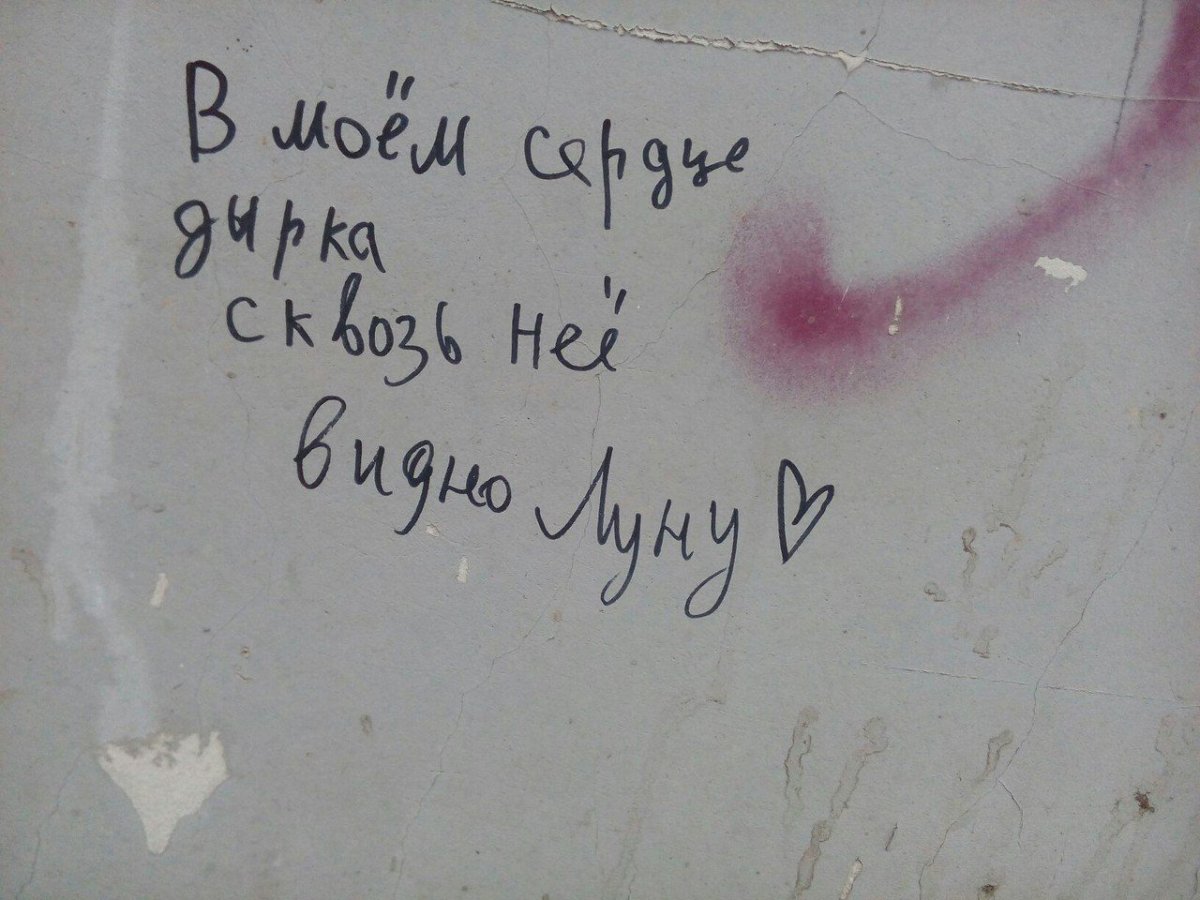 В моём сердце
дырка
сквозь неё
видно Луну ♡